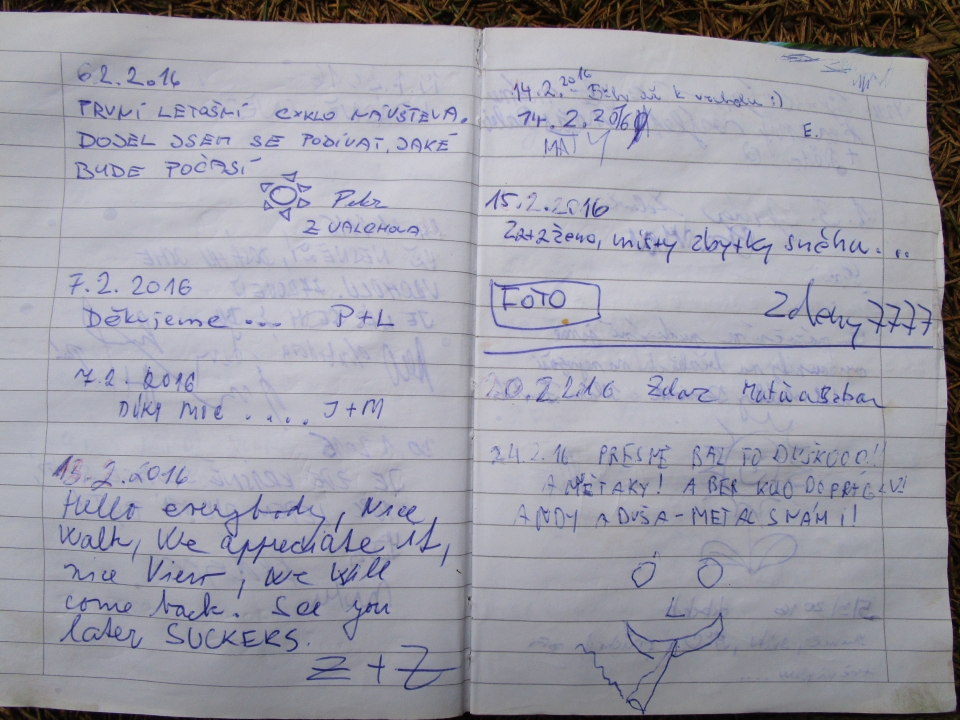 6.2.2016
PRVNÍ LETOŠNÍ CYKLO NÁVŠTĚVA.
DOJEL JSEM SE PODÍVAT, JAKÉ
BUDE POČASÍ
Petr
Z VALCHOVA
7.2. 2016
Děkujeme .... P+L
7.2. 2016
DÍKY MOC ..... J+M
13.2.2016
Hello everybody, Nice
Walk, We appreciate it,
nice View, we will
come back. See you
later SUCKERS.
Z+Z
14.2.2016 - Běhy až k vrcholu :)
14.2.2016
MATY
E.
15.2.2016
Zataženo, místy zbytky sněhu...
FOTO
Zdeny7777
20.2.2016 Zdar
24.2.16 PŘESNĚ BAL TO DUŠKOOO!!
A METAKY! A BER KUO
A A DUŠA - METAL S NÁMI!